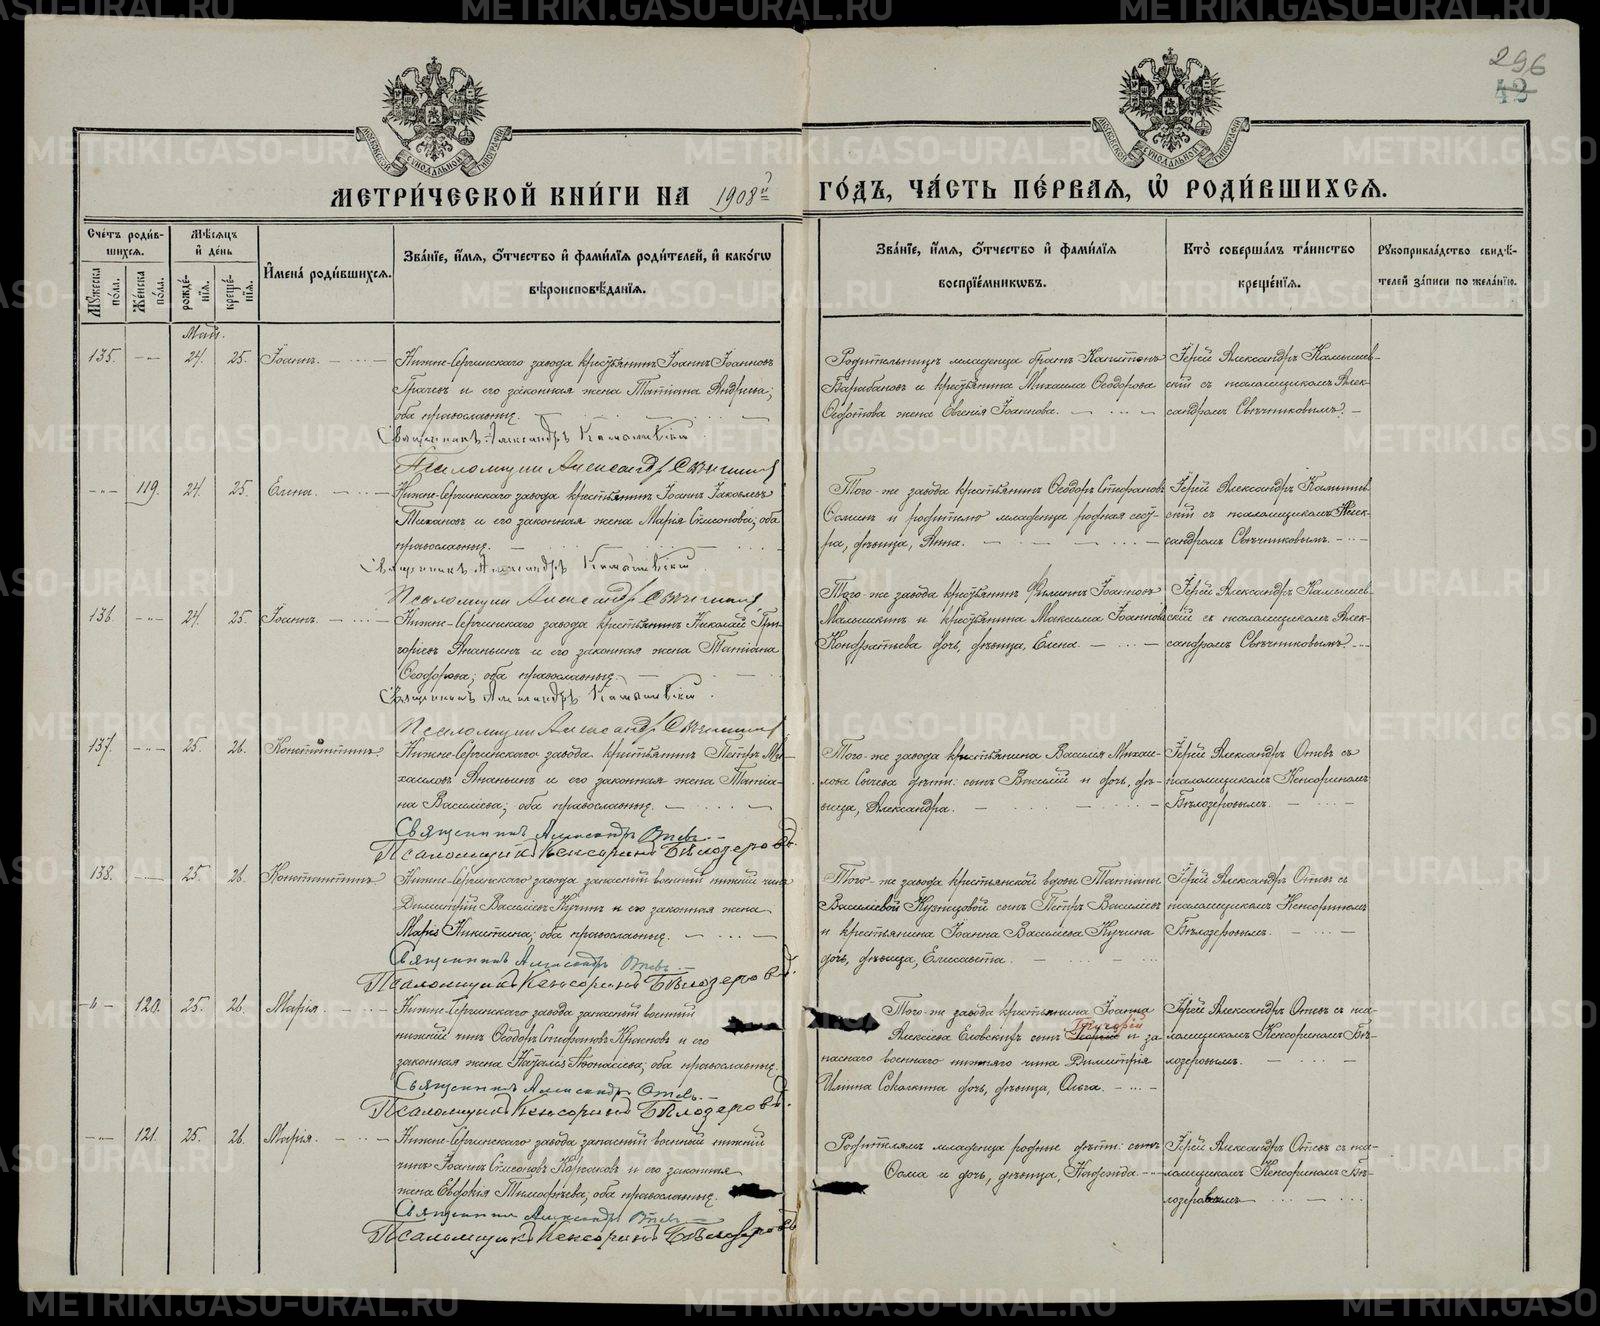 296
43
МЕТРИ́ЧЕСКОЙ КНИ́ГИ НА 1908й ГО́ДЪ, ЧА́СТЬ ПЕ́РВАѦ, Ѡ҆ РОДИ́ВШИХСѦ.
Сче́тъ роди́в-
шихсѧ.
Мꙋ́жеска по́ла.
Же́нска по́ла.
Мѣ́сѧцъ
и҆ де́нь
рожде́-
нїѧ.
креще́-
нїѧ.
И҆мена̀ роди́вшихсѧ.
Зва́нїе, и҆́мѧ, ѻ҆́тчество и҆ фами́лїѧ роди́телей, и҆ како́гѡ
вѣроисповѣ́данїѧ.
Зва́нїе, и҆́мѧ, ѻ҆́тчество и҆ фами́лїѧ
воспрїе́мникѡвъ.
Кто̀ соверша́лъ та́инство
креще́нїѧ.
Рꙋкоприкла́дство свидѣ́-
телей за́писи по жела́нїю.
Май.
135. — 24. 25. Іоаннъ.
Нижне-Сергинскаго завода крестьянинъ Іоаннъ Іоанновъ
Грачевъ и его законная жена Татіана Андреева;
оба православные.
Священникъ Александръ Камышевскій.
Псаломщикъ Александръ Свѣчниковъ
Родительницы младенца братъ Капитонъ
Барабановъ и крестьянина Михаила Ѳеодорова
жена Евгенія Іоаннова.
Іерей Александръ Камышев-
скій съ псаломщикомъ Алек-
сандромъ Свѣчниковымъ.
— 119. 24. 25. Елена.
Нижне-Сергинскаго завода крестьянинъ Іоаннъ Іаковлевъ
и его законная жена Марія Симонова; оба
православные.
Священникъ Александръ Камышевскій.
Псаломщикъ Александръ Свѣчниковъ
Того-же завода крестьянинъ Ѳеодоръ Стефановъ
и родителю младенца родная сест-
ра, дѣвица, Анна.
Іерей Александръ Камышев-
скій съ псаломщикомъ Алек-
сандромъ Свѣчниковымъ.
136. — 24. 25. Іоаннъ.
Нижне-Сергинскаго завода крестьянинъ Николай Гри-
горьевъ Ананьинъ и его законная жена Татіана
Ѳеодорова; оба православные.
Священникъ Александръ Камышевскій.
Псаломщикъ Александръ Свѣчниковъ
Того-же завода крестьянинъ Филиппъ Іоанновъ
Малышкинъ и крестьянина Максима Іоаннова
Кондратьева дочь, дѣвица, Елена.
Іерей Александръ Камышев-
скій съ псаломщикомъ Алек-
сандромъ Свѣчниковымъ.
137. — 25. 26. Константинъ.
Нижне-Сергинскаго завода крестьянинъ Петръ Ми-
хаиловъ Ананьинъ и его законная жена Татіа-
на Василіева; оба православные.
Священникъ Александръ Отевъ
Псаломщикъ Кенсоринъ Бѣлозеровъ.
Того-же завода крестьянина Василія Михаи-
лова Сычева дѣти: сынъ Василій и дочь, дѣ-
вица, Александра.
Іерей Александръ Отевъ съ
псаломщикомъ Кенсориномъ
Бѣлозеровымъ.
138. — 25. 26. Константинъ.
Нижне-Сергинскаго завода запасный военный нижній чинъ
Димитрій Василіевъ Кучинъ и его законная жена
Марія Никитина; оба православные.
Священникъ Александръ Отевъ
Псаломщикъ Кенсоринъ Бѣлозеровъ.
Того-же завода крестьянской вдовы Татіаны
Василіевой Кузнецовой сынъ Петръ Василіевъ
и крестьянина Іоанна Василіева Кучина
дочь, дѣвица, Елисавета.
Іерей Александръ Отевъ съ
псаломщикомъ Кенсориномъ
Бѣлозеровымъ.
-"- 120. 25. 26. Марія.
Нижне-Сергинскаго завода запасный военный
нижній чинъ Ѳеодоръ Стефановъ и его
законная жена Наталія Аѳонасіева; оба православные.
Священникъ Александръ Отевъ.
Псаломщикъ Кенсоринъ Бѣлозеровъ.
Того-же завода крестьянина Іоанна
Алексіева Еловскихъ сынъ Григорій и за-
паснаго военнаго нижняго чина Димитрія
Иліина Соколкина дочь, дѣвица, Ольга.
Іерей Александръ Отевъ съ пса-
ломщикомъ Кенсориномъ Бѣ-
лозеровымъ.
— 121. 25. 26. Марія.
Нижне-Сергинскаго завода запасный военный нижній
чинъ Іоаннъ Симоновъ и его законная
жена Евдокія Тимоѳеева; оба православные.
Священникъ Александръ Отевъ
Псаломщикъ Кенсоринъ Бѣлозеровъ
Родителямъ младенца родные дѣти: сынъ
Ѳома и дочь, дѣвица, Надежда.
Іерей Александръ Отевъ съ пса-
ломщикомъ Кенсориномъ Бѣ-
лозеровымъ
METRIKI.GASO-URAL.RU